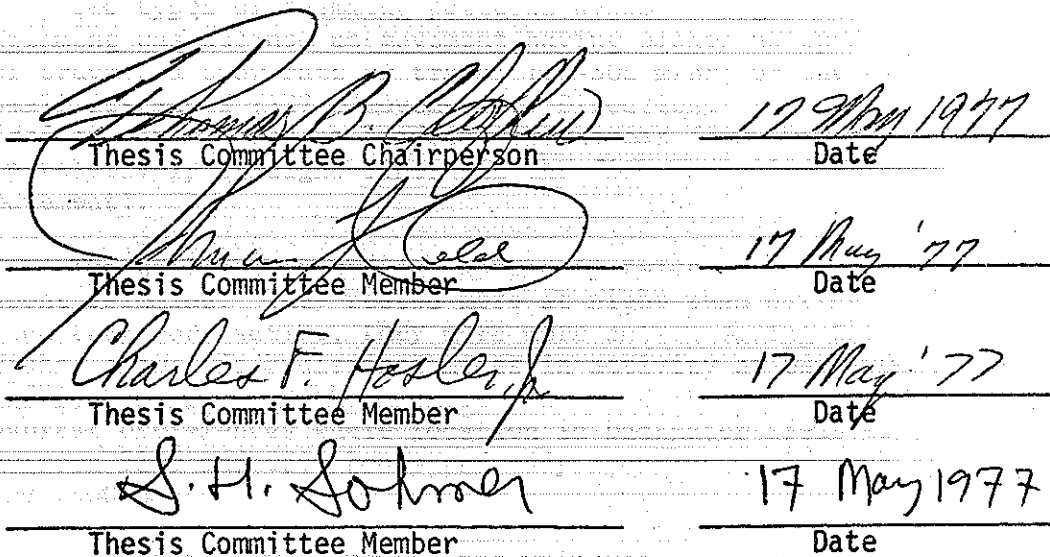 Thomas B. 17 May 1977
Thesis Committee Chairperson Date
17 May '77
Thesis Committee Member Date
Charles F. Hosler, Jr. 17 May '77
Thesis Committee Member Date
S. H. Sohmer 17 May 1977
Thesis Committee Member Date